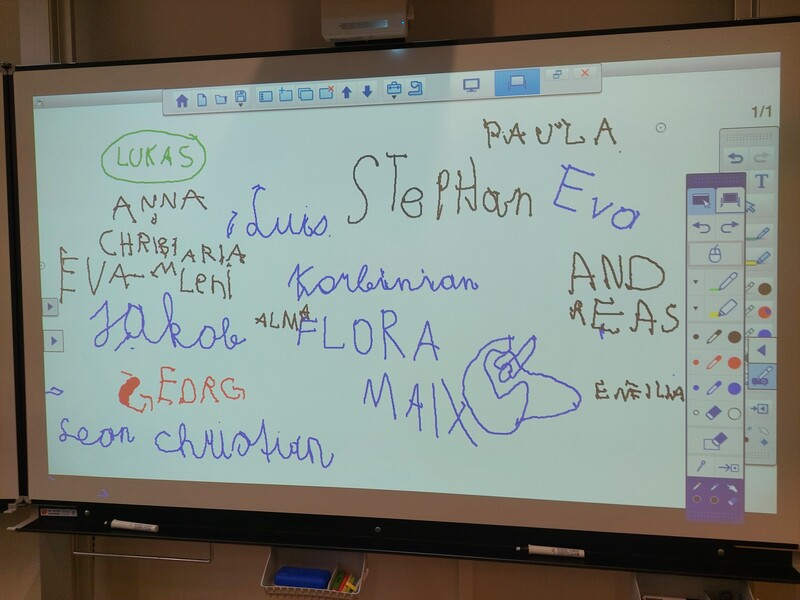 1/1
PAULA
LUKAS
STepHan
Eva
ANNA
Luis
T
EVA-
Leni
Korbinian
AND
REAS
Jakob
ALMA
FLORA
GEORG
MAIX
EMILIA
Leon
christian